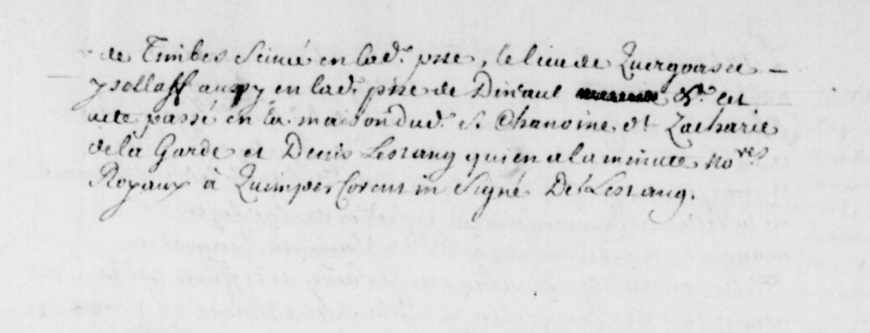 de Timbes Scitué en lad.e psse, le lieu de Quergoasce
ysollaff aussy en lad.e psse de Dineaul &.a cet
acte passé en la maison dud. S. Chanoine et Zacharie
de la Garde et Denis Lestang qui en a la minute No.res
Royaux à Quimper Corentin Signé De Lestang.